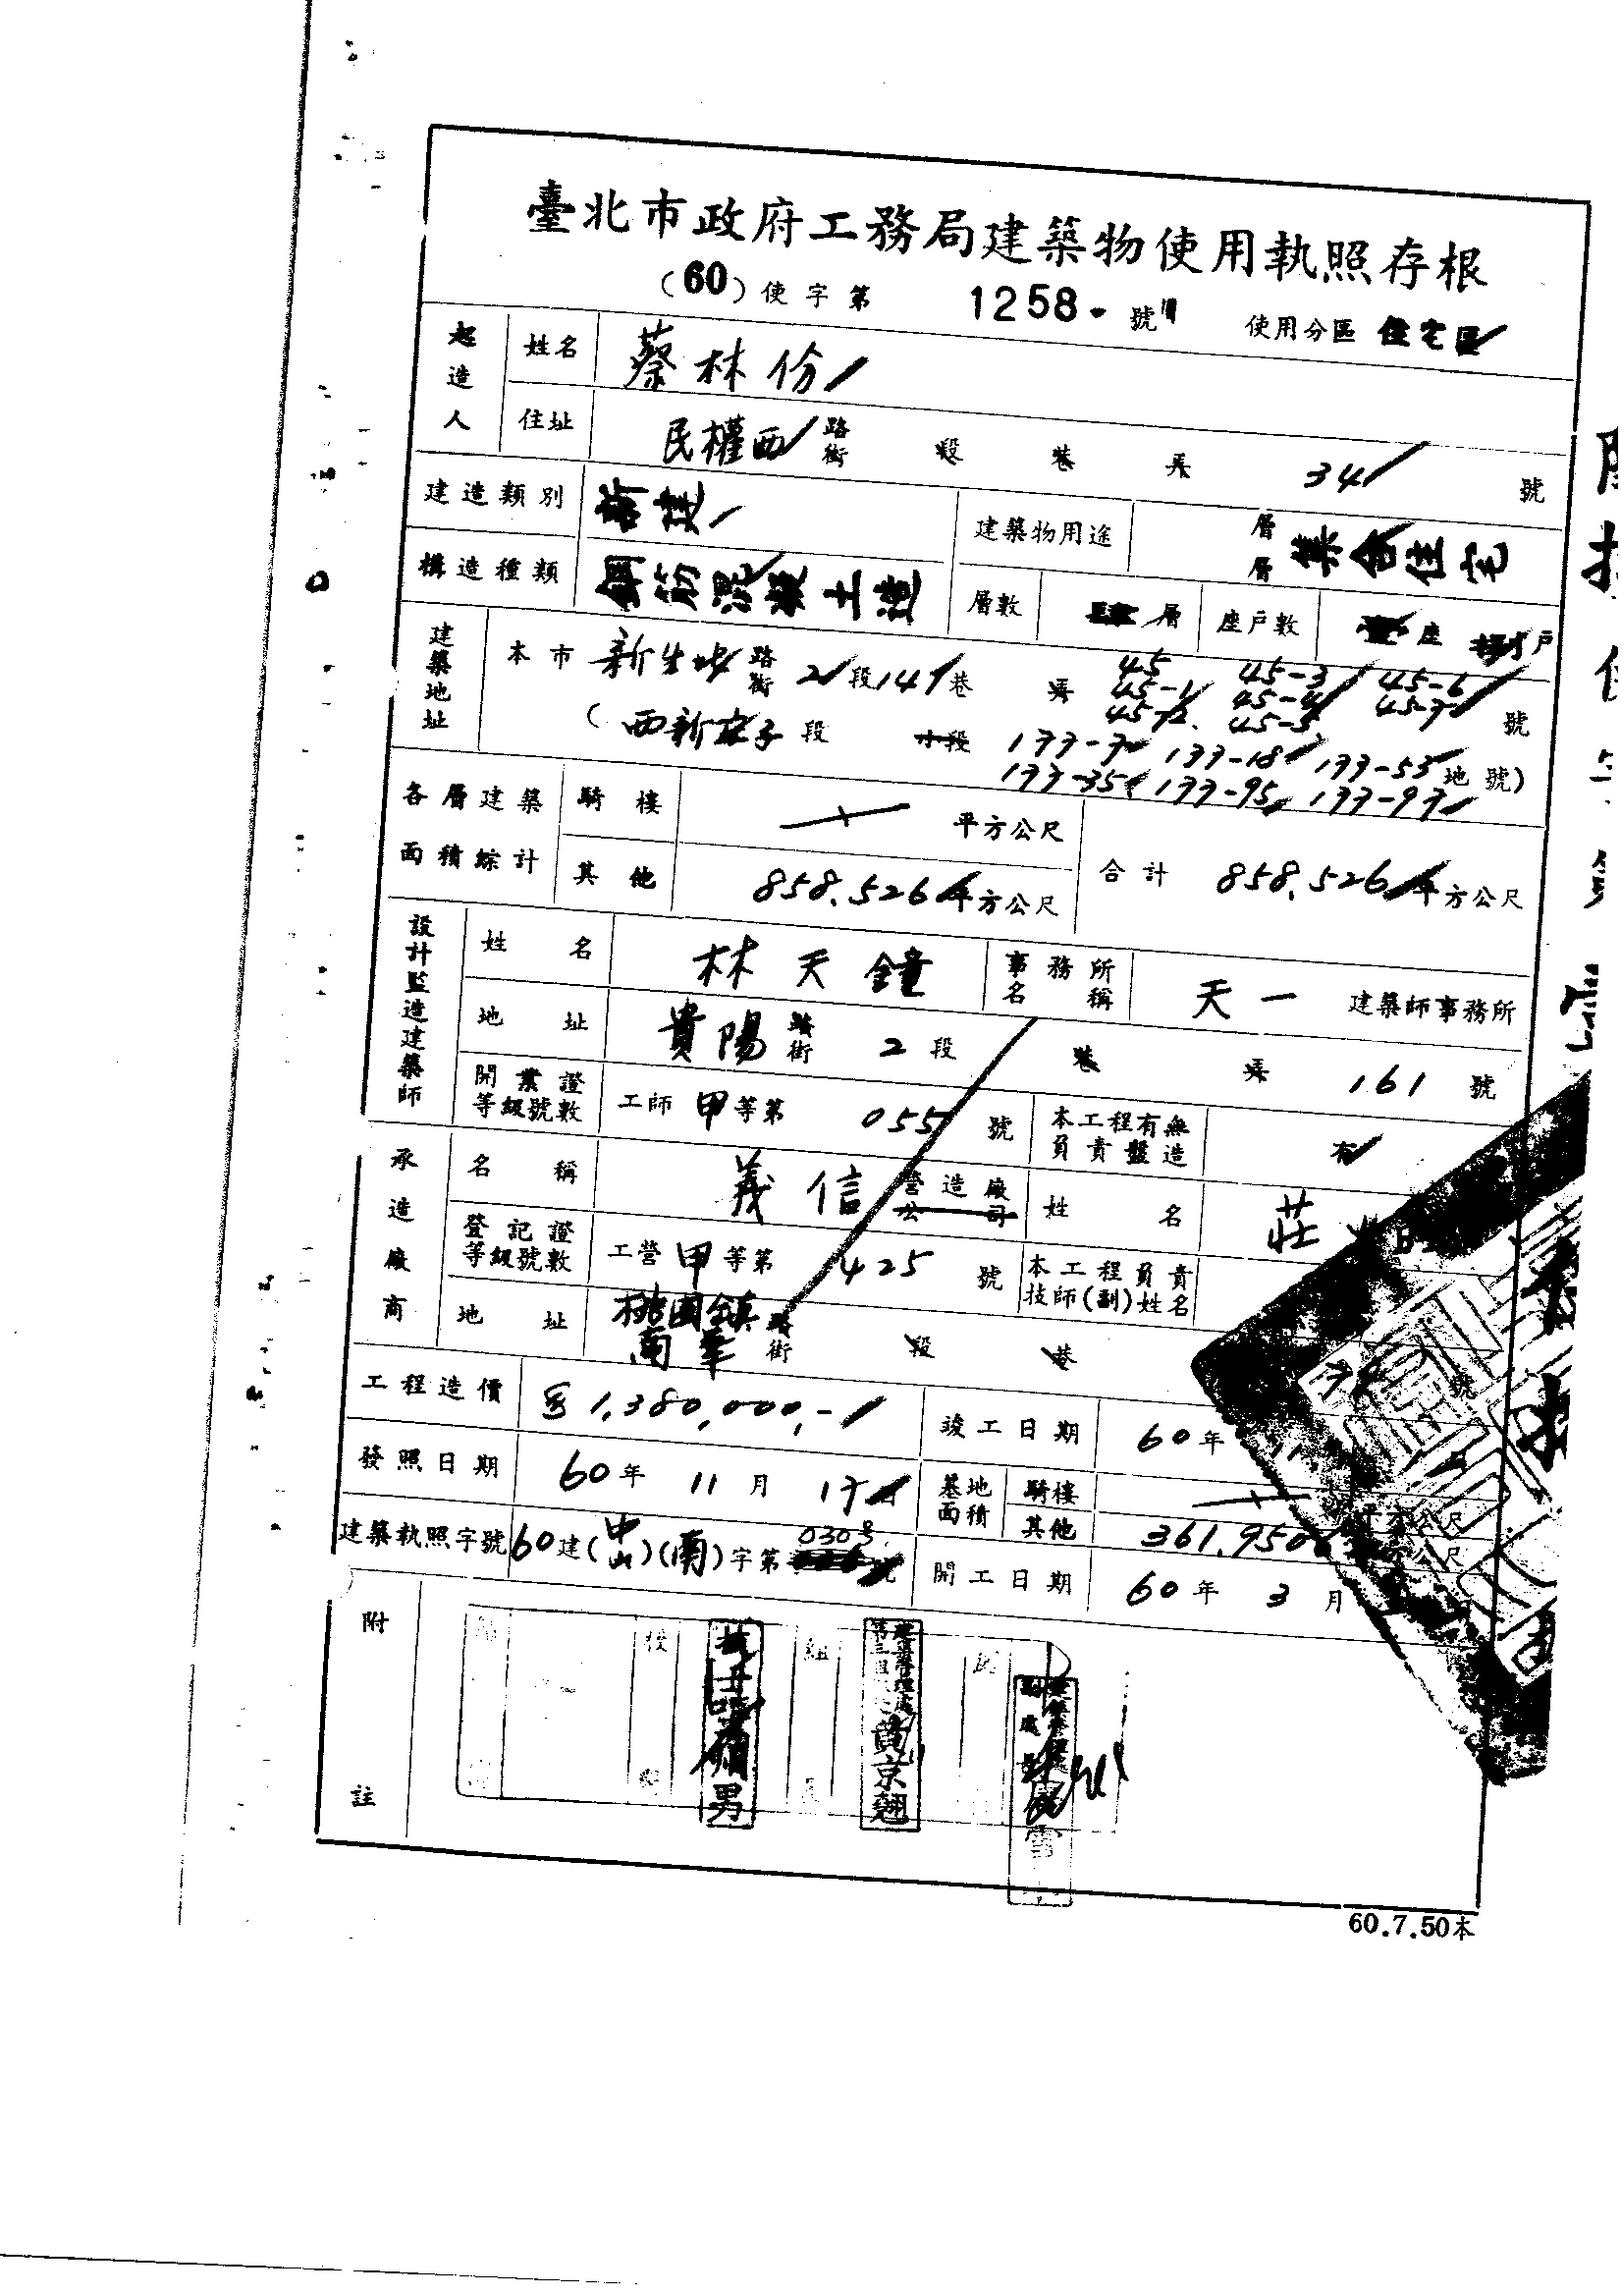 臺北市政府工務局建築物使用執照存根
(60)使字第 1258 號 使用分區 住宅區
起造人 姓名 蔡林份
住址 民權西 路街 段 巷 弄 34 號
建造類別 新建 建築物用途 層層 集合住宅
構造種類 鋼筋混凝土造 層數 層 座戶數 座 戶
建築地址 本市 新生北 路街 2 段 147 巷 弄 45 45-1 45-2 45-3 45-4 45-5 45-6 45-7 號
(西新庄子 段 小段 177-7 177-18 177-53 177-35 177-95 177-97 地號)
各層建築面積綜計 騎樓 平方公尺
其他 858.526 平方公尺 合計 858.526 平方公尺
設計監造建築師 姓名 林天鐘 事務所名稱 天一 建築師事務所
地址 貴陽 路街 2 段 巷 弄 161 號
開業證等級號數 工師 甲 等第 055 號 本工程有無負責監造 有
承造廠商 名稱 義信 營造廠公司 姓名 莊
登記證等級號數 工營 甲 等第 425 號 本工程負責技師(副)姓名
地址 桃園鎮 南華 路街 段 巷 號
工程造價 $1,380,000,- 竣工日期 60年
發照日期 60年 11月 17日 基地面積 騎樓
其他 361.950
建築執照字號 60建(中山)(南)字第 030号 開工日期 60年 3月
附註
男
建築管理處 第三組 黃京翹
60.7.50本